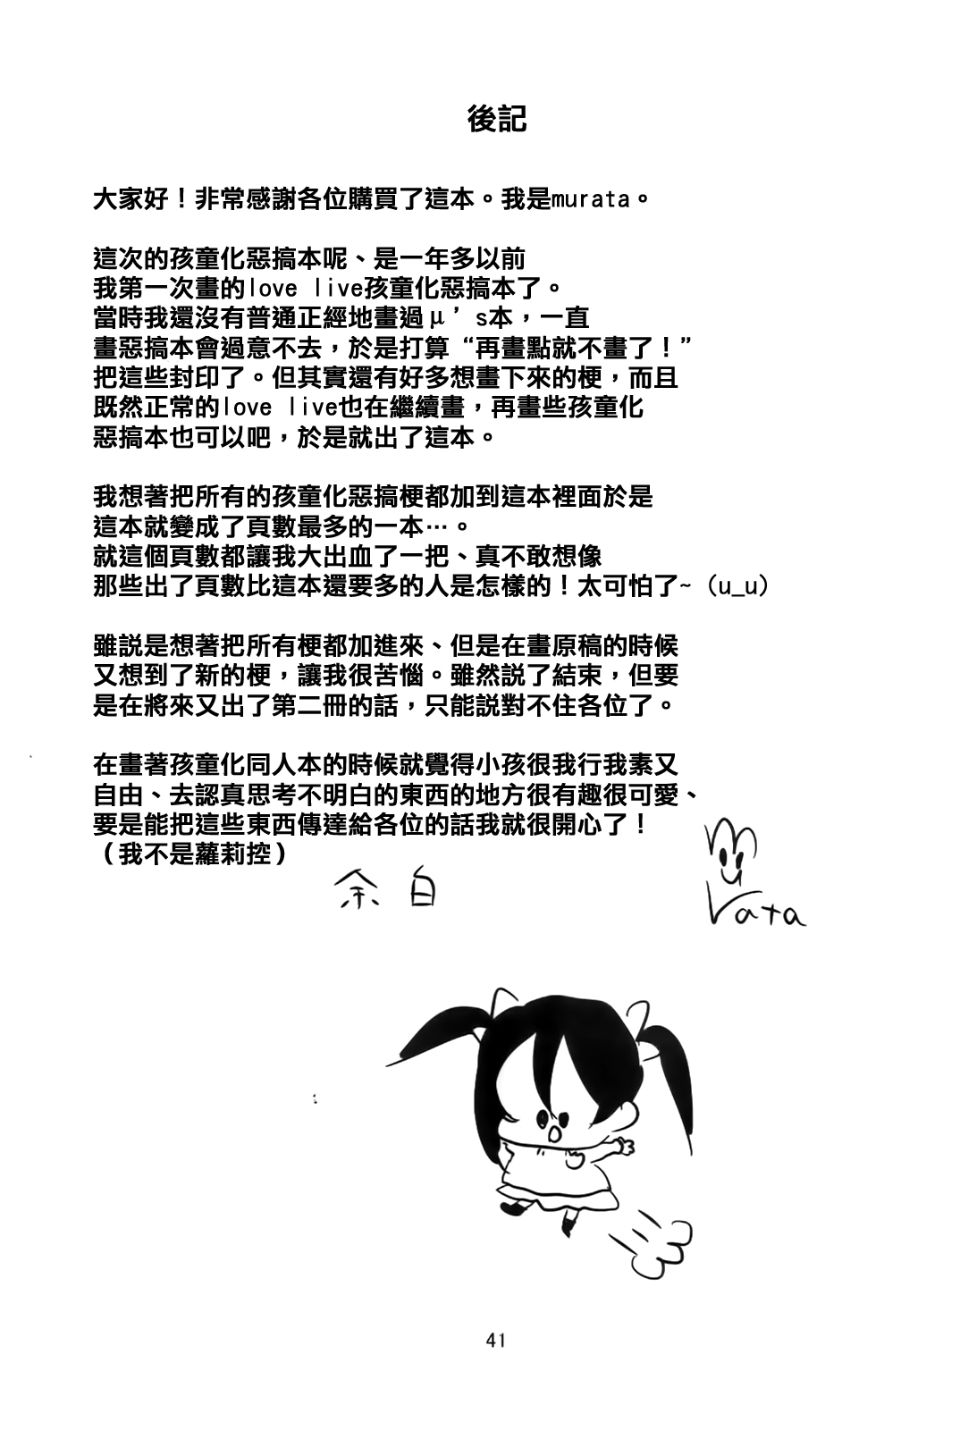 後記
大家好！非常感謝各位購買了這本。我是murata。
這次的孩童化惡搞本呢、是一年多以前
我第一次畫的love live孩童化惡搞本了。
當時我還沒有普通正經地畫過μ’s本，一直
畫惡搞本會過意不去，於是打算“再畫點就不畫了！”
把這些封印了。但其實還有好多想畫下來的梗，而且
既然正常的love live也在繼續畫，再畫些孩童化
惡搞本也可以吧，於是就出了這本。
我想著把所有的孩童化惡搞梗都加到這本裡面於是
這本就變成了頁數最多的一本…。
就這個頁數都讓我大出血了一把、真不敢想像
那些出了頁數比這本還要多的人是怎樣的！太可怕了~（u_u）
雖説是想著把所有梗都加進來、但是在畫原稿的時候
又想到了新的梗，讓我很苦惱。雖然説了結束，但要
是在將來又出了第二冊的話，只能説對不住各位了。
在畫著孩童化同人本的時候就覺得小孩很我行我素又
自由、去認真思考不明白的東西的地方很有趣很可愛、
要是能把這些東西傳達給各位的話我就很開心了！
（我不是蘿莉控）
余白
murata
41